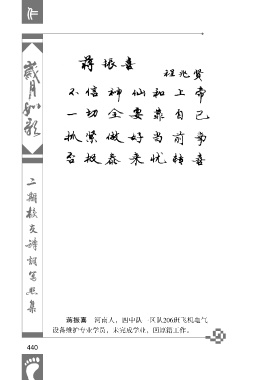 岁月如歌
二期校友诗词笔照集
蒋振喜
程兆贤
不信神仙和上帝
一切全要靠自己
抓紧做好当前事
否极泰来忧转喜
蒋振喜 河南人，四中队一区队206班飞机电气
设备维护专业学员，未完成学业，回原籍工作。
440